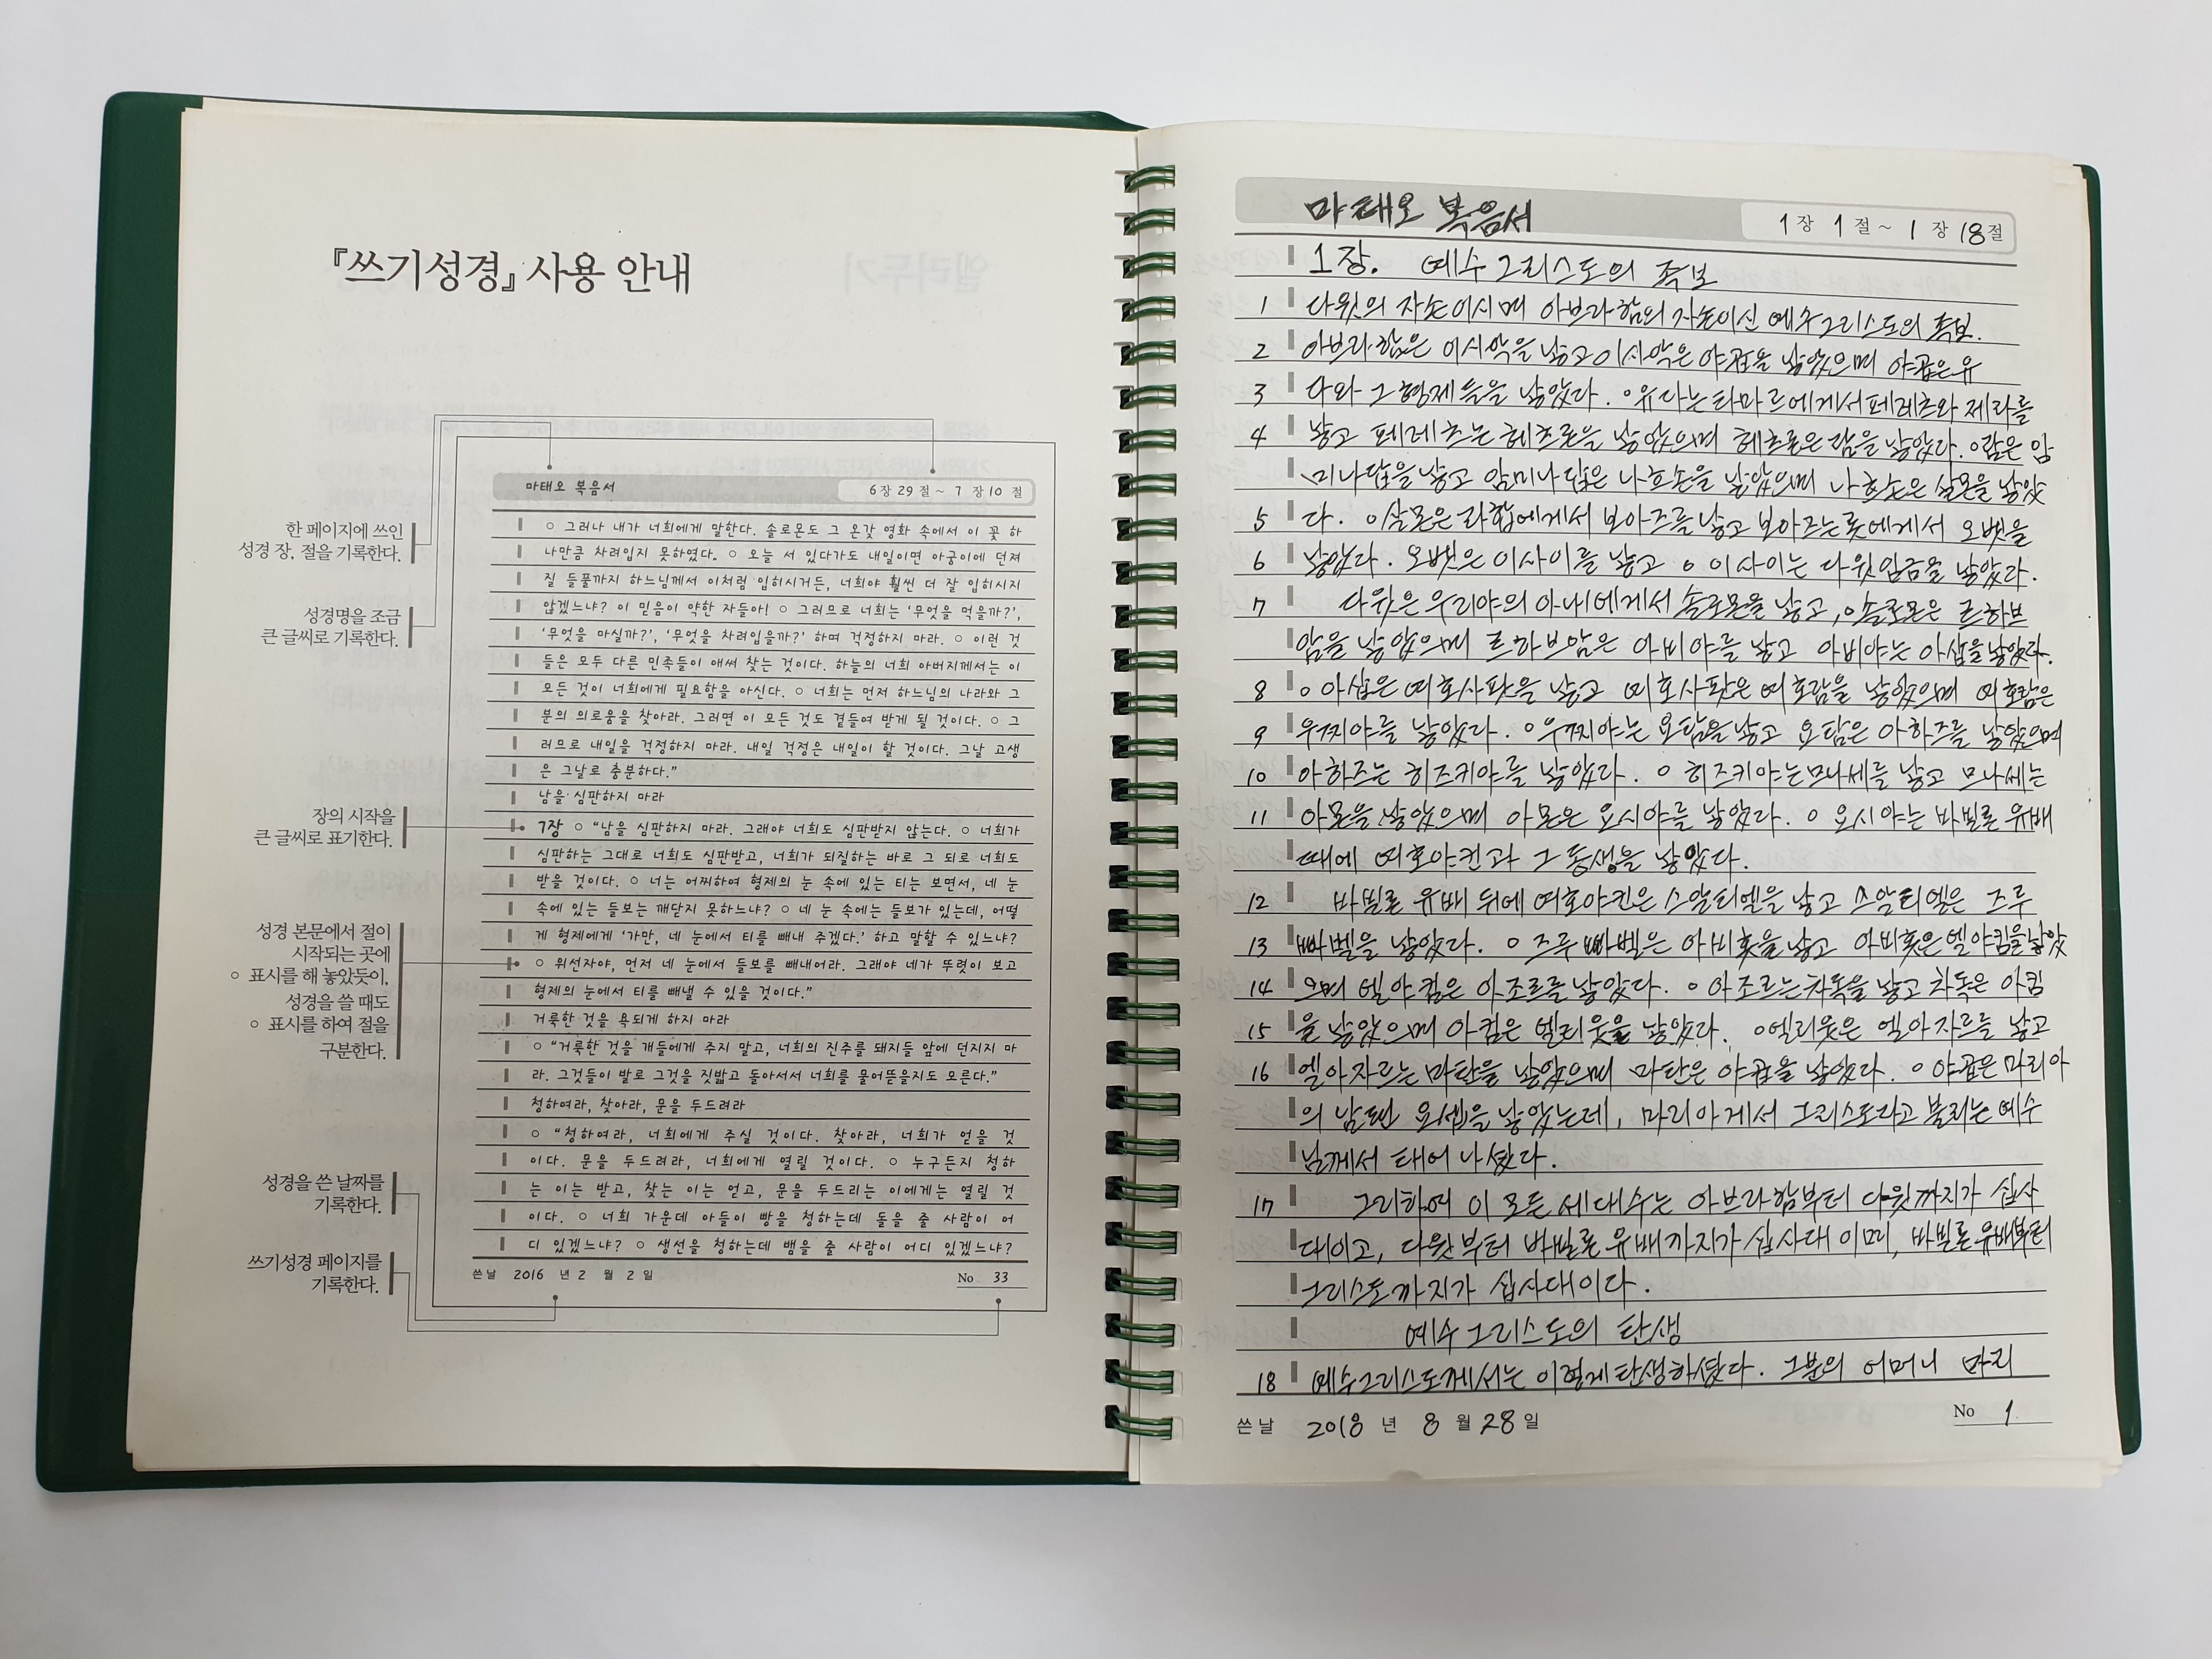 『쓰기성경』 사용 안내
한 페이지에 쓰인
성경 장, 절을 기록한다.
성경명을 조금
큰 글씨로 기록한다.
장의 시작을
큰 글씨로 표기한다.
성경 본문에서 절이
시작되는 곳에
○ 표시를 해 놓았듯이,
성경을 쓸 때도
○ 표시를 하여 절을
구분한다.
성경을 쓴 날짜를
기록한다.
쓰기성경 페이지를
기록한다.
마태오 복음서 6장 29절~ 7 장 10 절
○ 그러나 내가 너희에게 말한다. 솔로몬도 그 온갖 영화 속에서 이 꽃 하
나만큼 차려입지 못하였다. ○ 오늘 서 있다가도 내일이면 아궁이에 던져
질 들풀까지 하느님께서 이처럼 입히시거든, 너희야 훨씬 더 잘 입히시지
않겠느냐? 이 믿음이 약한 자들아! ○ 그러므로 너희는 ‘무엇을 먹을까?’,
‘무엇을 마실까?’, ‘무엇을 차려입을까?’ 하며 걱정하지 마라. ○ 이런 것
들은 모두 다른 민족들이 애써 찾는 것이다. 하늘의 너희 아버지께서는 이
모든 것이 너희에게 필요함을 아신다. ○ 너희는 먼저 하느님의 나라와 그
분의 의로움을 찾아라. 그러면 이 모든 것도 곁들여 받게 될 것이다. ○ 그
러므로 내일을 걱정하지 마라. 내일 걱정은 내일이 할 것이다. 그날 고생
은 그날로 충분하다.”
남을 심판하지 마라
7장 ○ “남을 심판하지 마라. 그래야 너희도 심판받지 않는다. ○ 너희가
심판하는 그대로 너희도 심판받고, 너희가 되질하는 바로 그 되로 너희도
받을 것이다. ○ 너는 어찌하여 형제의 눈 속에 있는 티는 보면서, 네 눈
속에 있는 들보는 깨닫지 못하느냐? ○ 네 눈 속에는 들보가 있는데, 어떻
게 형제에게 ‘가만, 네 눈에서 티를 빼내 주겠다.’ 하고 말할 수 있느냐?
○ 위선자야, 먼저 네 눈에서 들보를 빼내어라. 그래야 네가 뚜렷이 보고
형제의 눈에서 티를 빼낼 수 있을 것이다.”
거룩한 것을 욕되게 하지 마라
○ “거룩한 것을 개들에게 주지 말고, 너희의 진주를 돼지들 앞에 던지지 마
라. 그것들이 발로 그것을 짓밟고 돌아서서 너희를 물어뜯을지도 모른다.”
청하여라, 찾아라, 문을 두드려라
○ “청하여라, 너희에게 주실 것이다. 찾아라, 너희가 얻을 것
이다. 문을 두드려라, 너희에게 열릴 것이다. ○ 누구든지 청하
는 이는 받고, 찾는 이는 얻고, 문을 두드리는 이에게는 열릴 것
이다. ○ 너희 가운데 아들이 빵을 청하는데 돌을 줄 사람이 어
디 있겠느냐? ○ 생선을 청하는데 뱀을 줄 사람이 어디 있겠느냐?
쓴날 2016 년 2 월 2 일 No 33
마태오 복음서 1장 1절~ 1장 18절
1장. 예수 그리스도의 족보
1 다윗의 자손이시며 아브라함의 자손이신 예수그리스도의 족보.
2 아브라함은 이사악을 낳고 이사악은 야곱을 낳았으며 야곱은 유
3 다와 그 형제들을 낳았다. ○유다는 타마르에게서 페레츠와 제라를
4 낳고 페레츠는 헤츠론을 낳았으며 헤츠론은 람을 낳았다. ○람은 암
미나답을 낳고 암미나답은 나흐손을 낳았으며 나흐손은 살몬을 낳았
5 다. ○살몬은 라합에게서 보아즈를 낳고 보아즈는 룻에게서 오벳을
6 낳았다. 오벳은 이사이를 낳고 ○ 이사이는 다윗 임금을 낳았다.
7 다윗은 우리야의 아내에게서 솔로몬을 낳고, ○솔로몬은 르하브
암을 낳았으며 르하브암은 아비야를 낳고 아비야는 아삽을 낳았다.
8 ○ 아삽은 여호사팟을 낳고 여호사팟은 여호람을 낳았으며 여호람은
9 우찌야를 낳았다. ○우찌야는 요탐을 낳고 요탐은 아하즈를 낳았으며
10 아하즈는 히즈키야를 낳았다. ○ 히즈키야는 므나쎄를 낳고 므나쎄는
11 아몬을 낳았으며 아몬은 요시야를 낳았다. ○ 요시야는 바빌론 유배
때에 여호야킨과 그 동생을 낳았다.
12 바빌론 유배 뒤에 여호야킨은 스알티엘을 낳고 스알티엘은 즈루
13 빠벨을 낳았다. ○ 즈루빠벨은 아비훗을 낳고 아비훗은 엘야킴을 낳았
14 으며 엘야킴은 아조르를 낳았다. ○ 아조르는 차독을 낳고 차독은 아킴
15 을 낳았으며 아킴은 엘리웃을 낳았다. ○엘리웃은 엘아자르를 낳고
16 엘아자르는 마탄을 낳았으며 마탄은 야곱을 낳았다. ○ 야곱은 마리아
의 남편 요셉을 낳았는데, 마리아게서 그리스도라고 불리는 예수
님께서 태어나셨다.
17 그리하여 이 모든 세대수는 아브라함부터 다윗까지가 십사
대이고, 다윗부터 바빌론 유배까지가 십사대이며, 바빌론 유배부터
그리스도까지가 십사대이다.
예수 그리스도의 탄생
18 예수그리스도께서는 이렇게 탄생하셨다. 그분의 어머니 마리
쓴날 2018 년 8 월 28 일 No 1